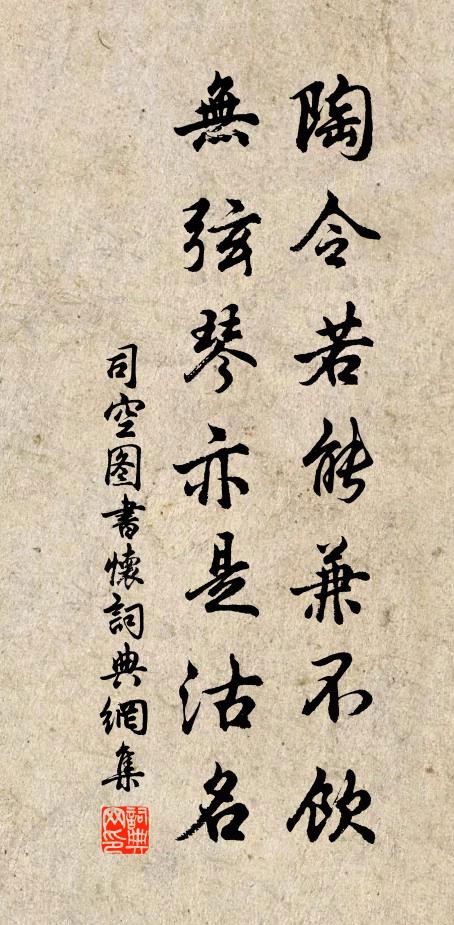 陶令若能兼不飲
無弦琴亦是沽名
司空图書懷詞典網集
詞典
网印